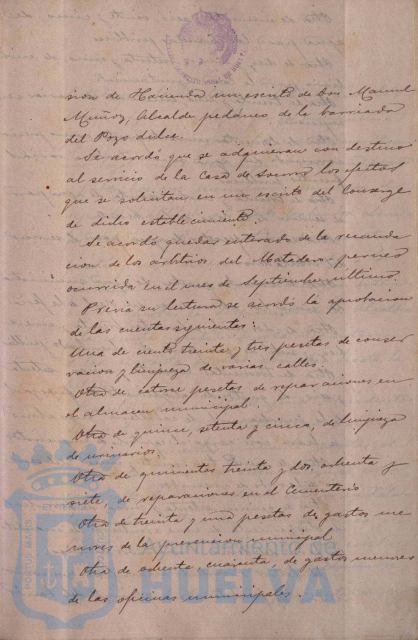 sion de Hacienda un escrito de Don Manuel
Muñoz, Alcalde pedáneo de la barriada
del Pozo dulce.
Se acordó que se adquieran con destino
al servicio de la Casa de Socorro los efectos
que se solicitan en un escrito del Conserge
de dicho establecimiento.
Se acordó quedar enterado de la recauda
cion de los arbitrios del Matadero
ocurrida en el mes de Septiembre último.
Prévia su lectura se acordó la aprobacion
de las cuentas siguientes:
Una de ciento treinta y tres pesetas de conser
vacion y limpieza de varias calles.
Otra de catorce pesetas de reparaciones en
el almacen municipal.
Otra de quince, setenta y cinco, de limpieza
de urinarios.
Otra de quinientas treinta y dos, ochenta y
siete, de reparaciones en el Cementerio
Otra de treinta y una pesetas de gastos me
nores de la prevencion municipal
Otra de ochenta, cuarenta, de gastos menores
de las oficinas municipales.
Ayuntamiento de
HUELVA